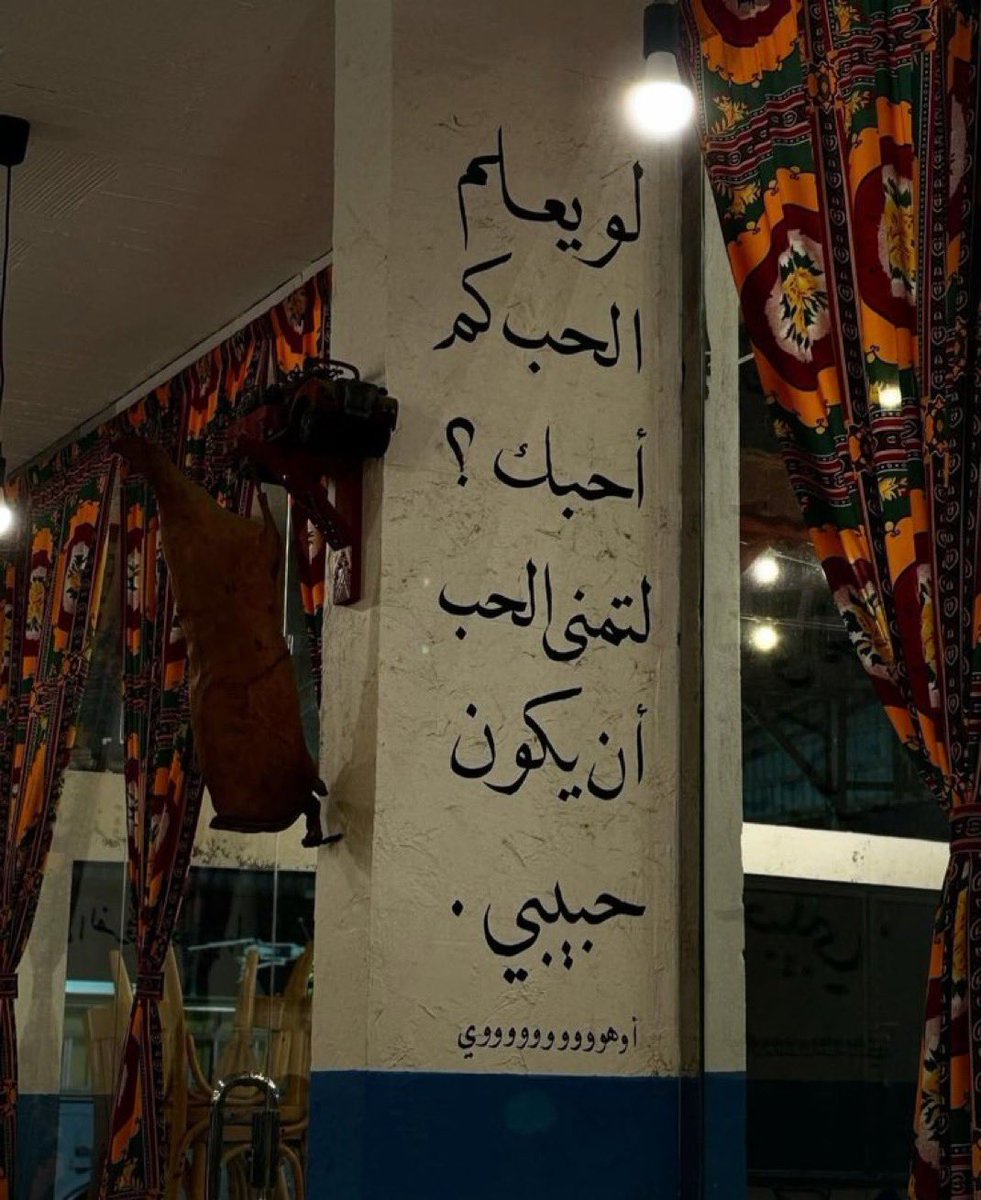 لو يعلم
الحب كم
أحبك ؟
لتمنى الحب
أن يكون
حبيبي .
أوهوووووووووي